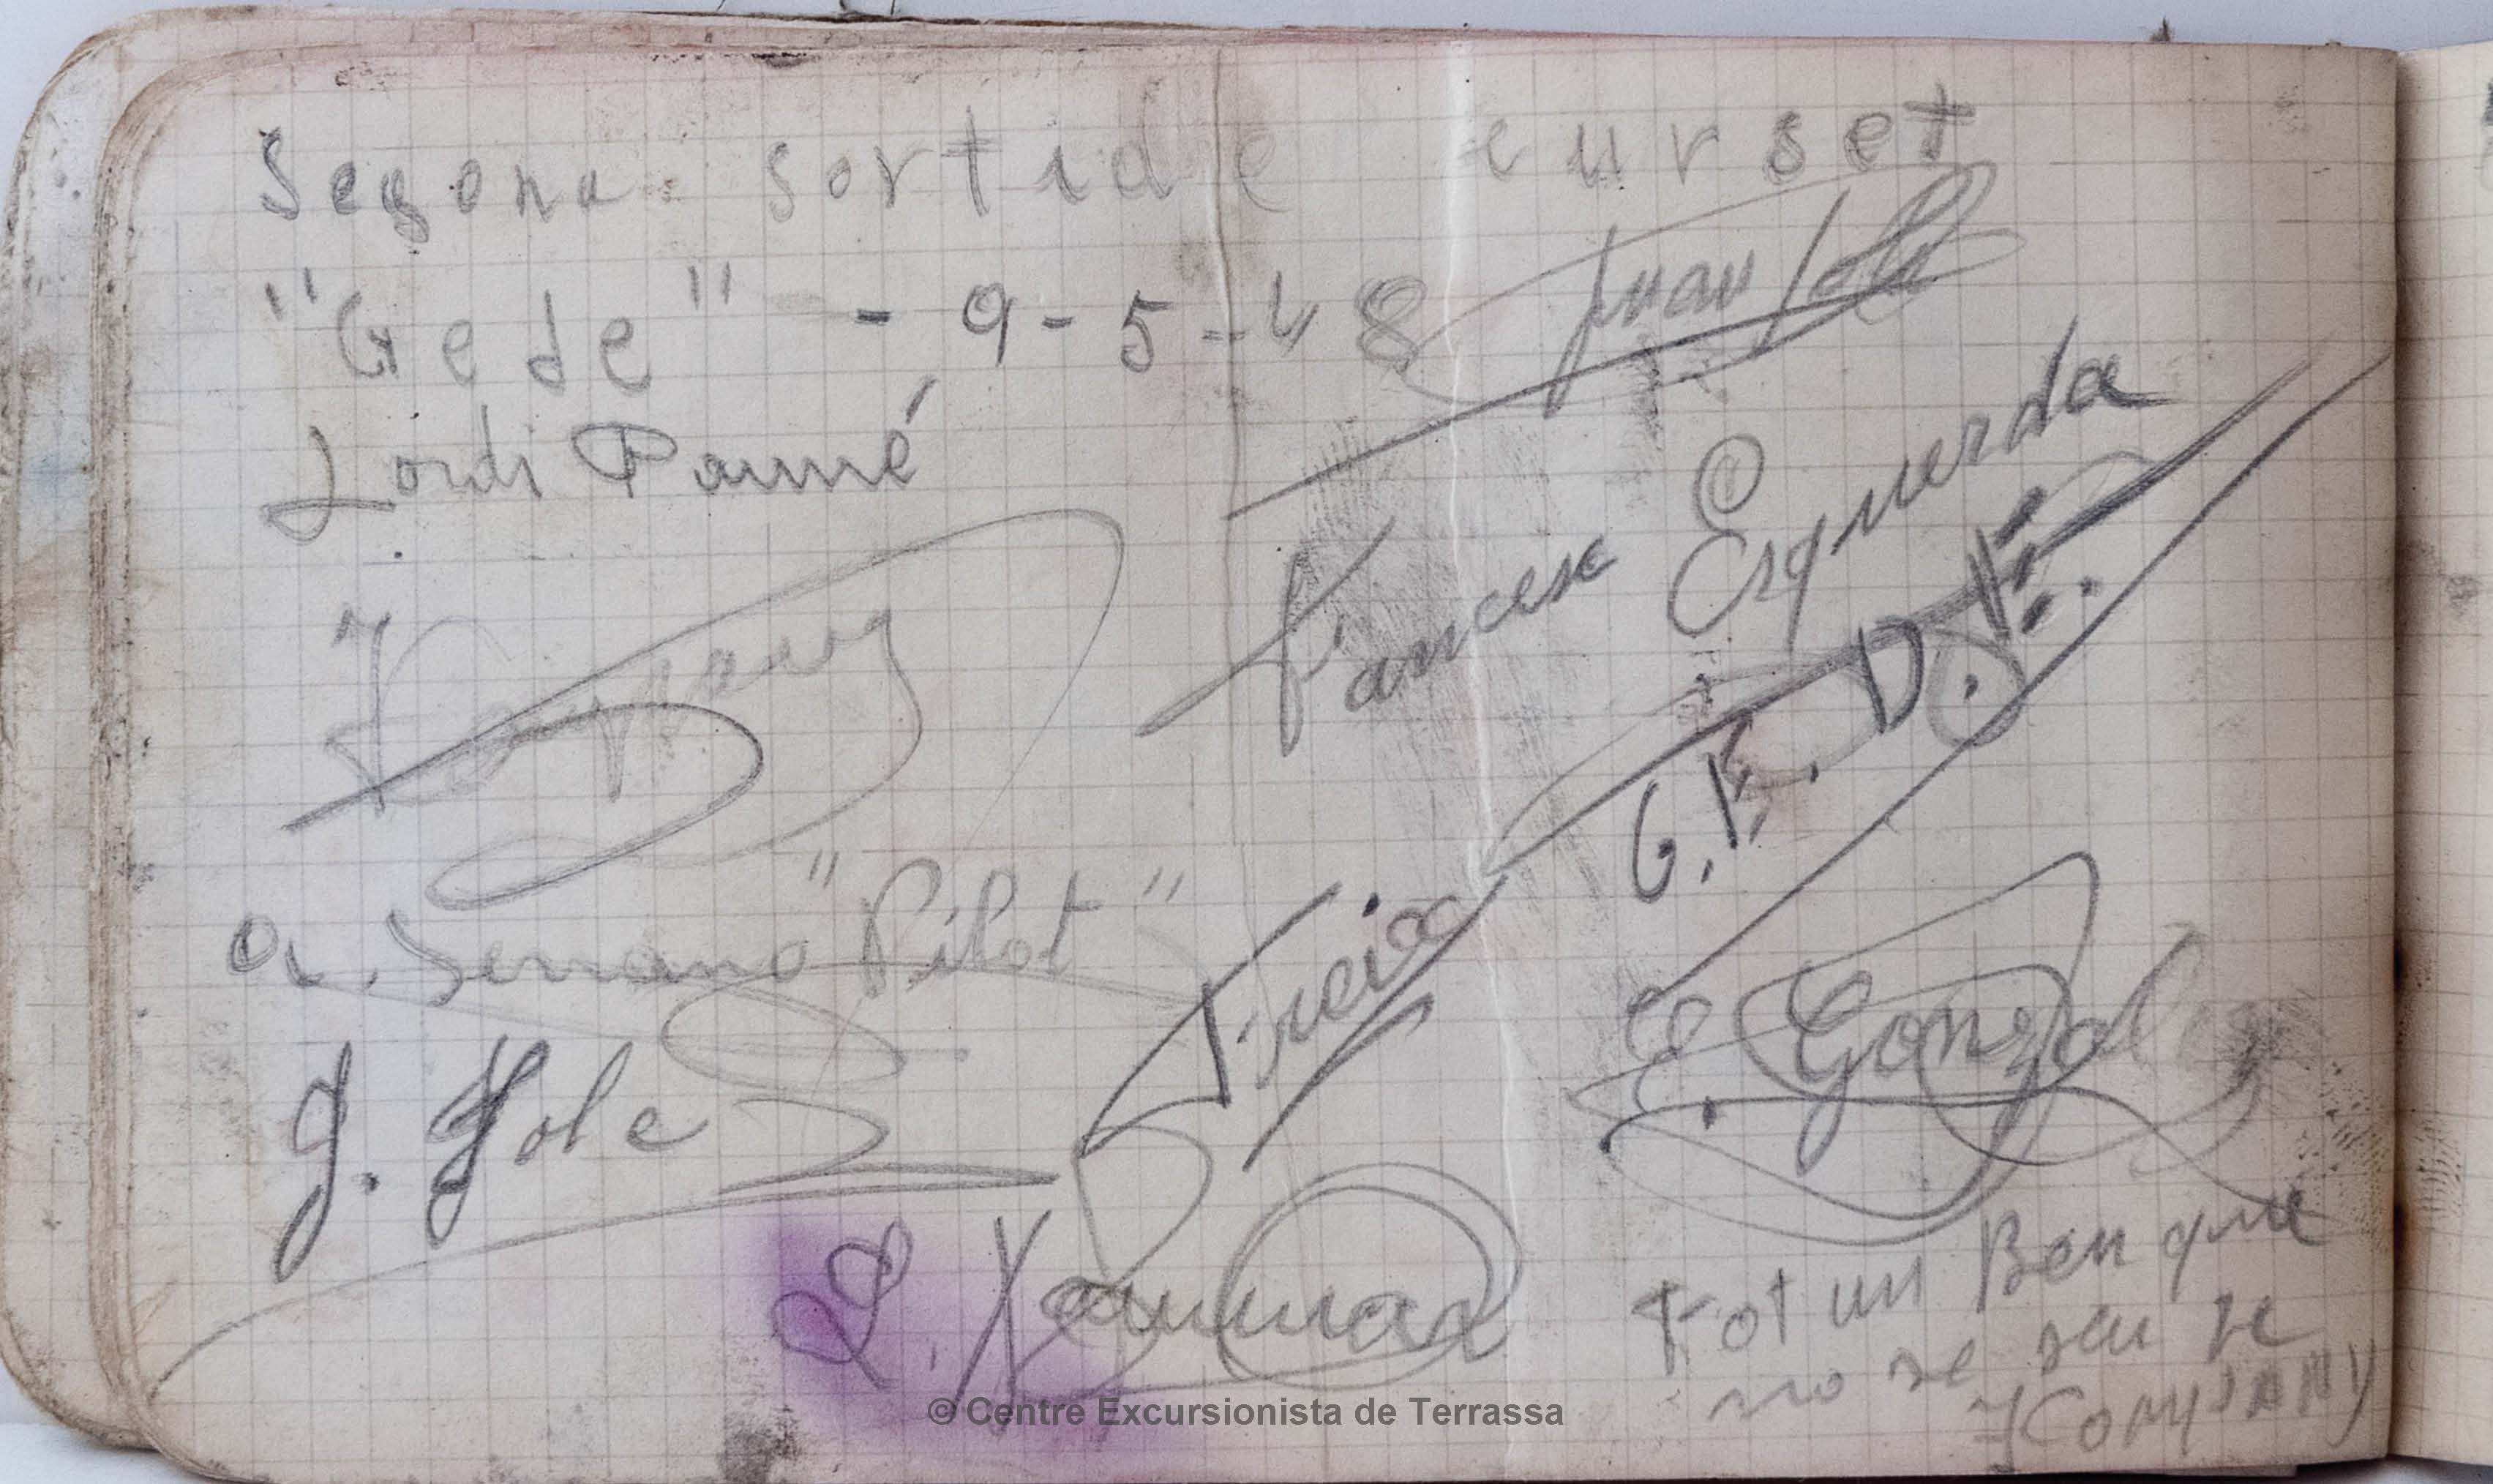 Segona sortida e curset
"Gede" - 9-5-48
Juan Sola
Jordi Pauné
Francesc Esquerda
G.E.D.E.
J Company
A. Serrano "Pilot"
Freixa
E. Gonzalez
J. Sole
tot un Ben que
no se seu se
J Company
© Centre Excursionista de Terrassa